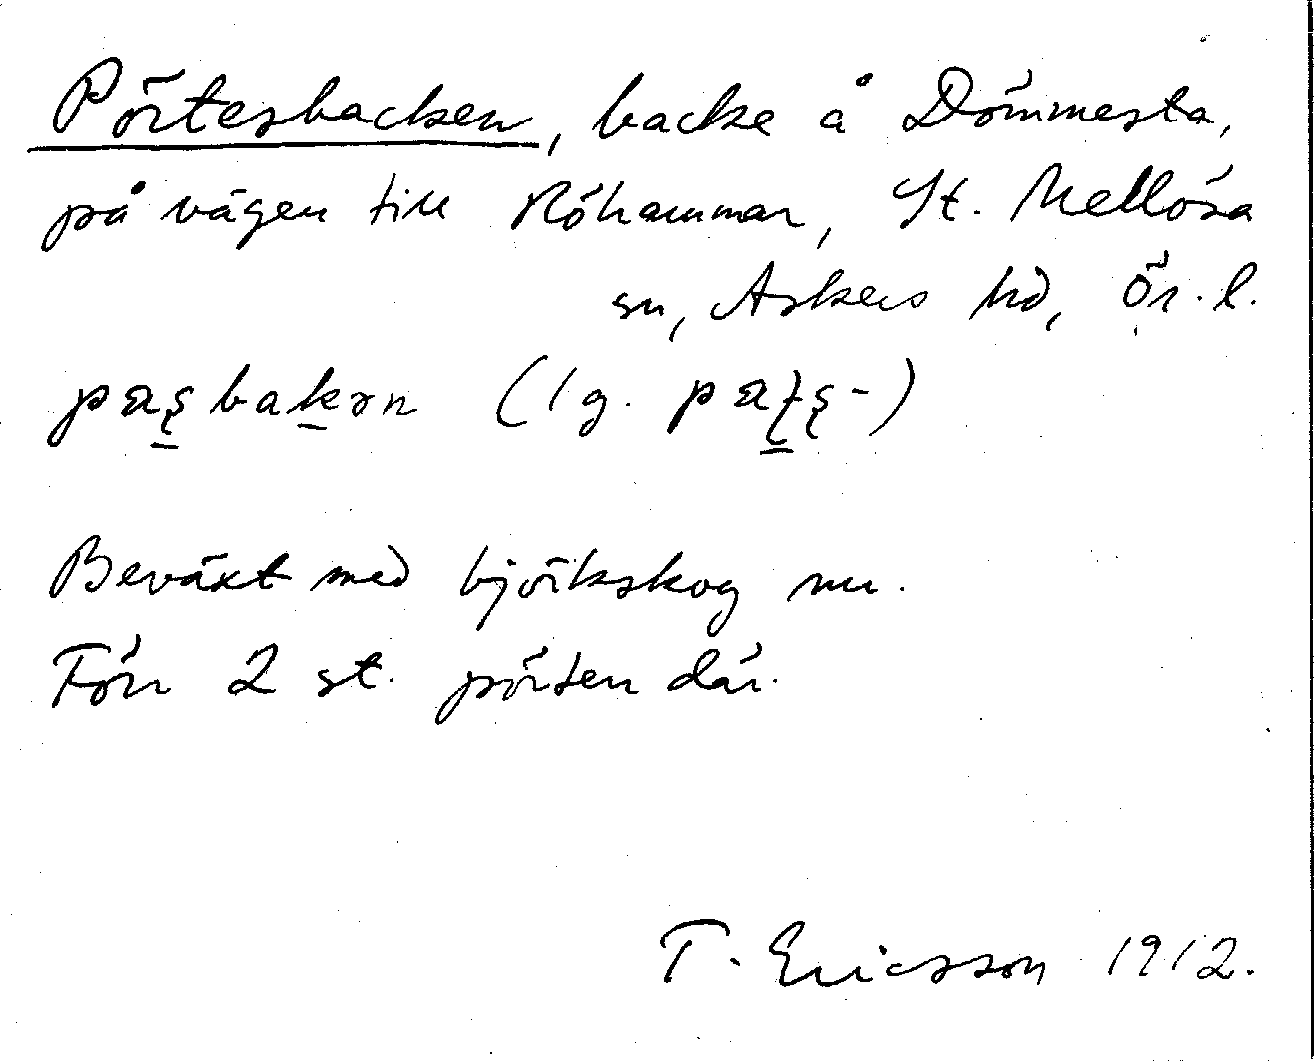 Pörtesbacken, backe å Dömmesta,
på vägen till Röhammar, St. Mellösa
sn, Askers hd, Ör. l.
Beväxt med björkskog nu.
Förr 2 st. pörten där.
T. Ericsson 1912.